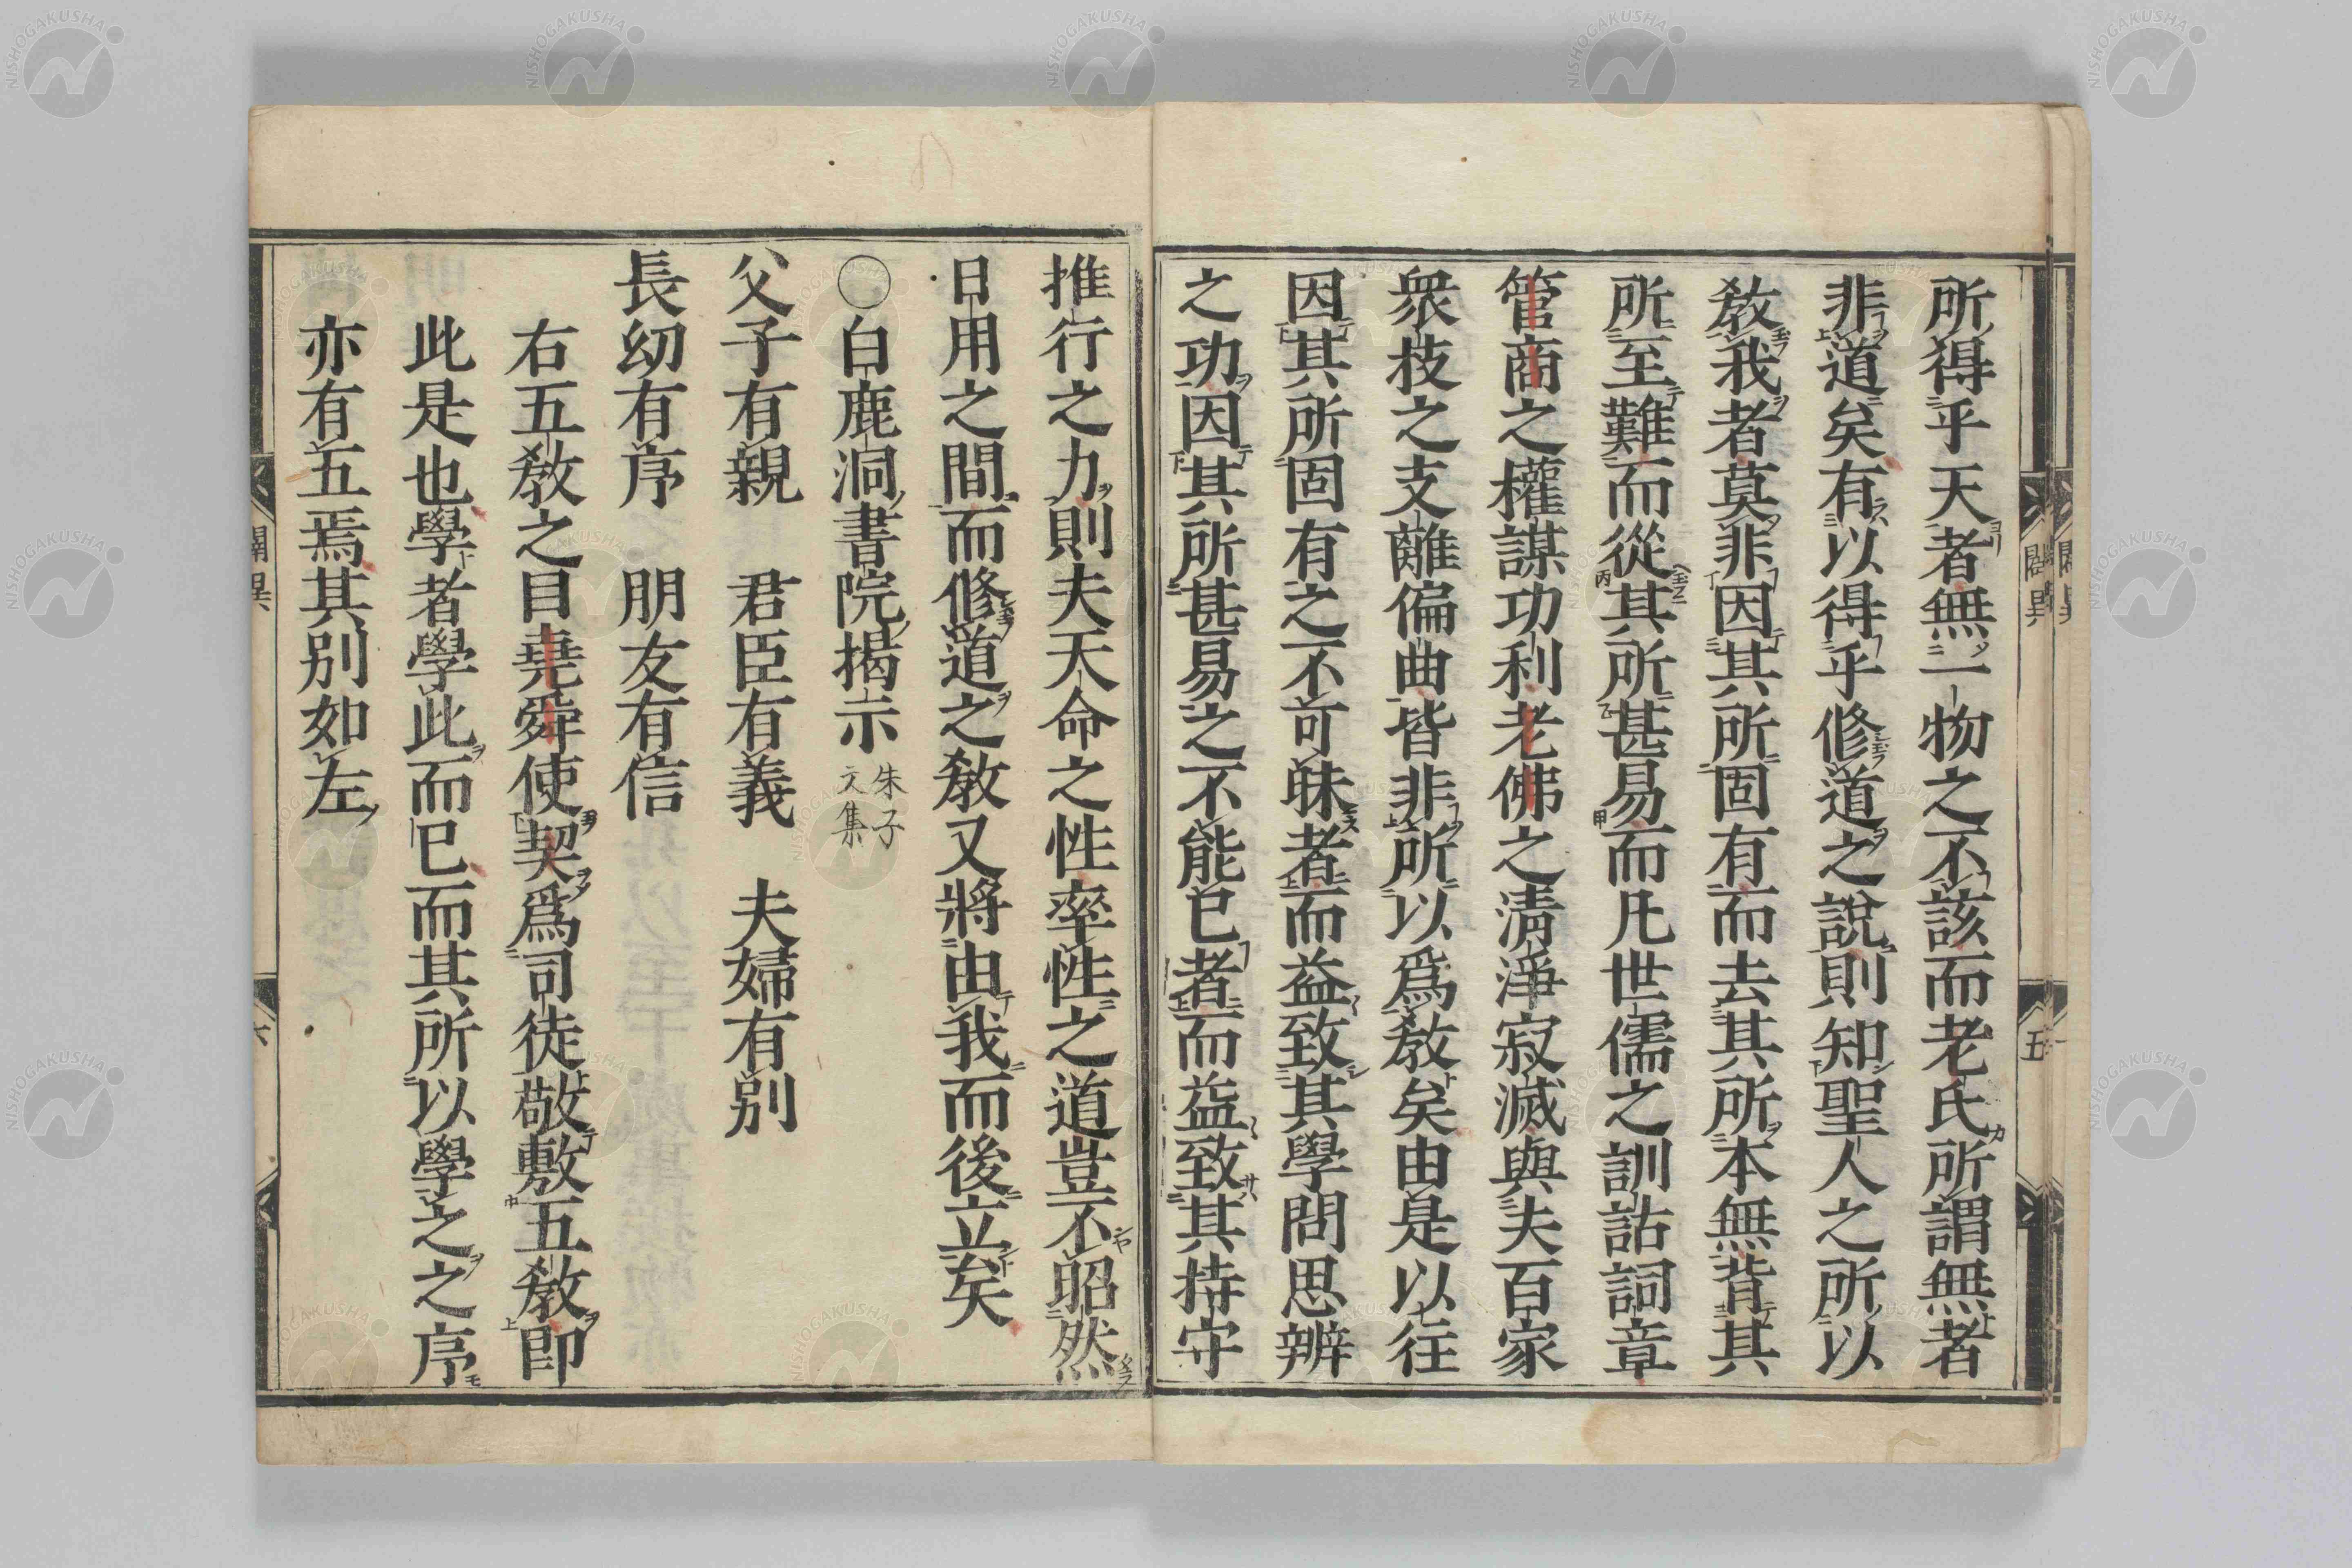 所得乎天者無一物之不該而老氏所謂無者
非道矣有以得乎修道之說則知聖人之所以
敎我者莫非因其所固有而去其所本無背其
所至難而從其所甚易而凡世儒之訓詁詞章
管商之權謀功利老佛之淸淨寂滅與夫百家
衆技之支離偏曲皆非所以爲敎矣由是以往
因其所固有之不可昧者而益致其學問思辨
之功因其所甚易之不能已者而益致其持守
闢異
五
推行之力則夫天命之性率性之道豈不昭然
日用之間而修道之敎又將由我而後立矣
○白鹿洞書院揭示 朱子文集
父子有親 君臣有義 夫婦有別
長幼有序 朋友有信
右五敎之目堯舜使契爲司徒敬敷五敎卽
此是也學者學此而已而其所以學之之序
亦有五焉其別如左
闢異
六
NISHOGAKUSHA